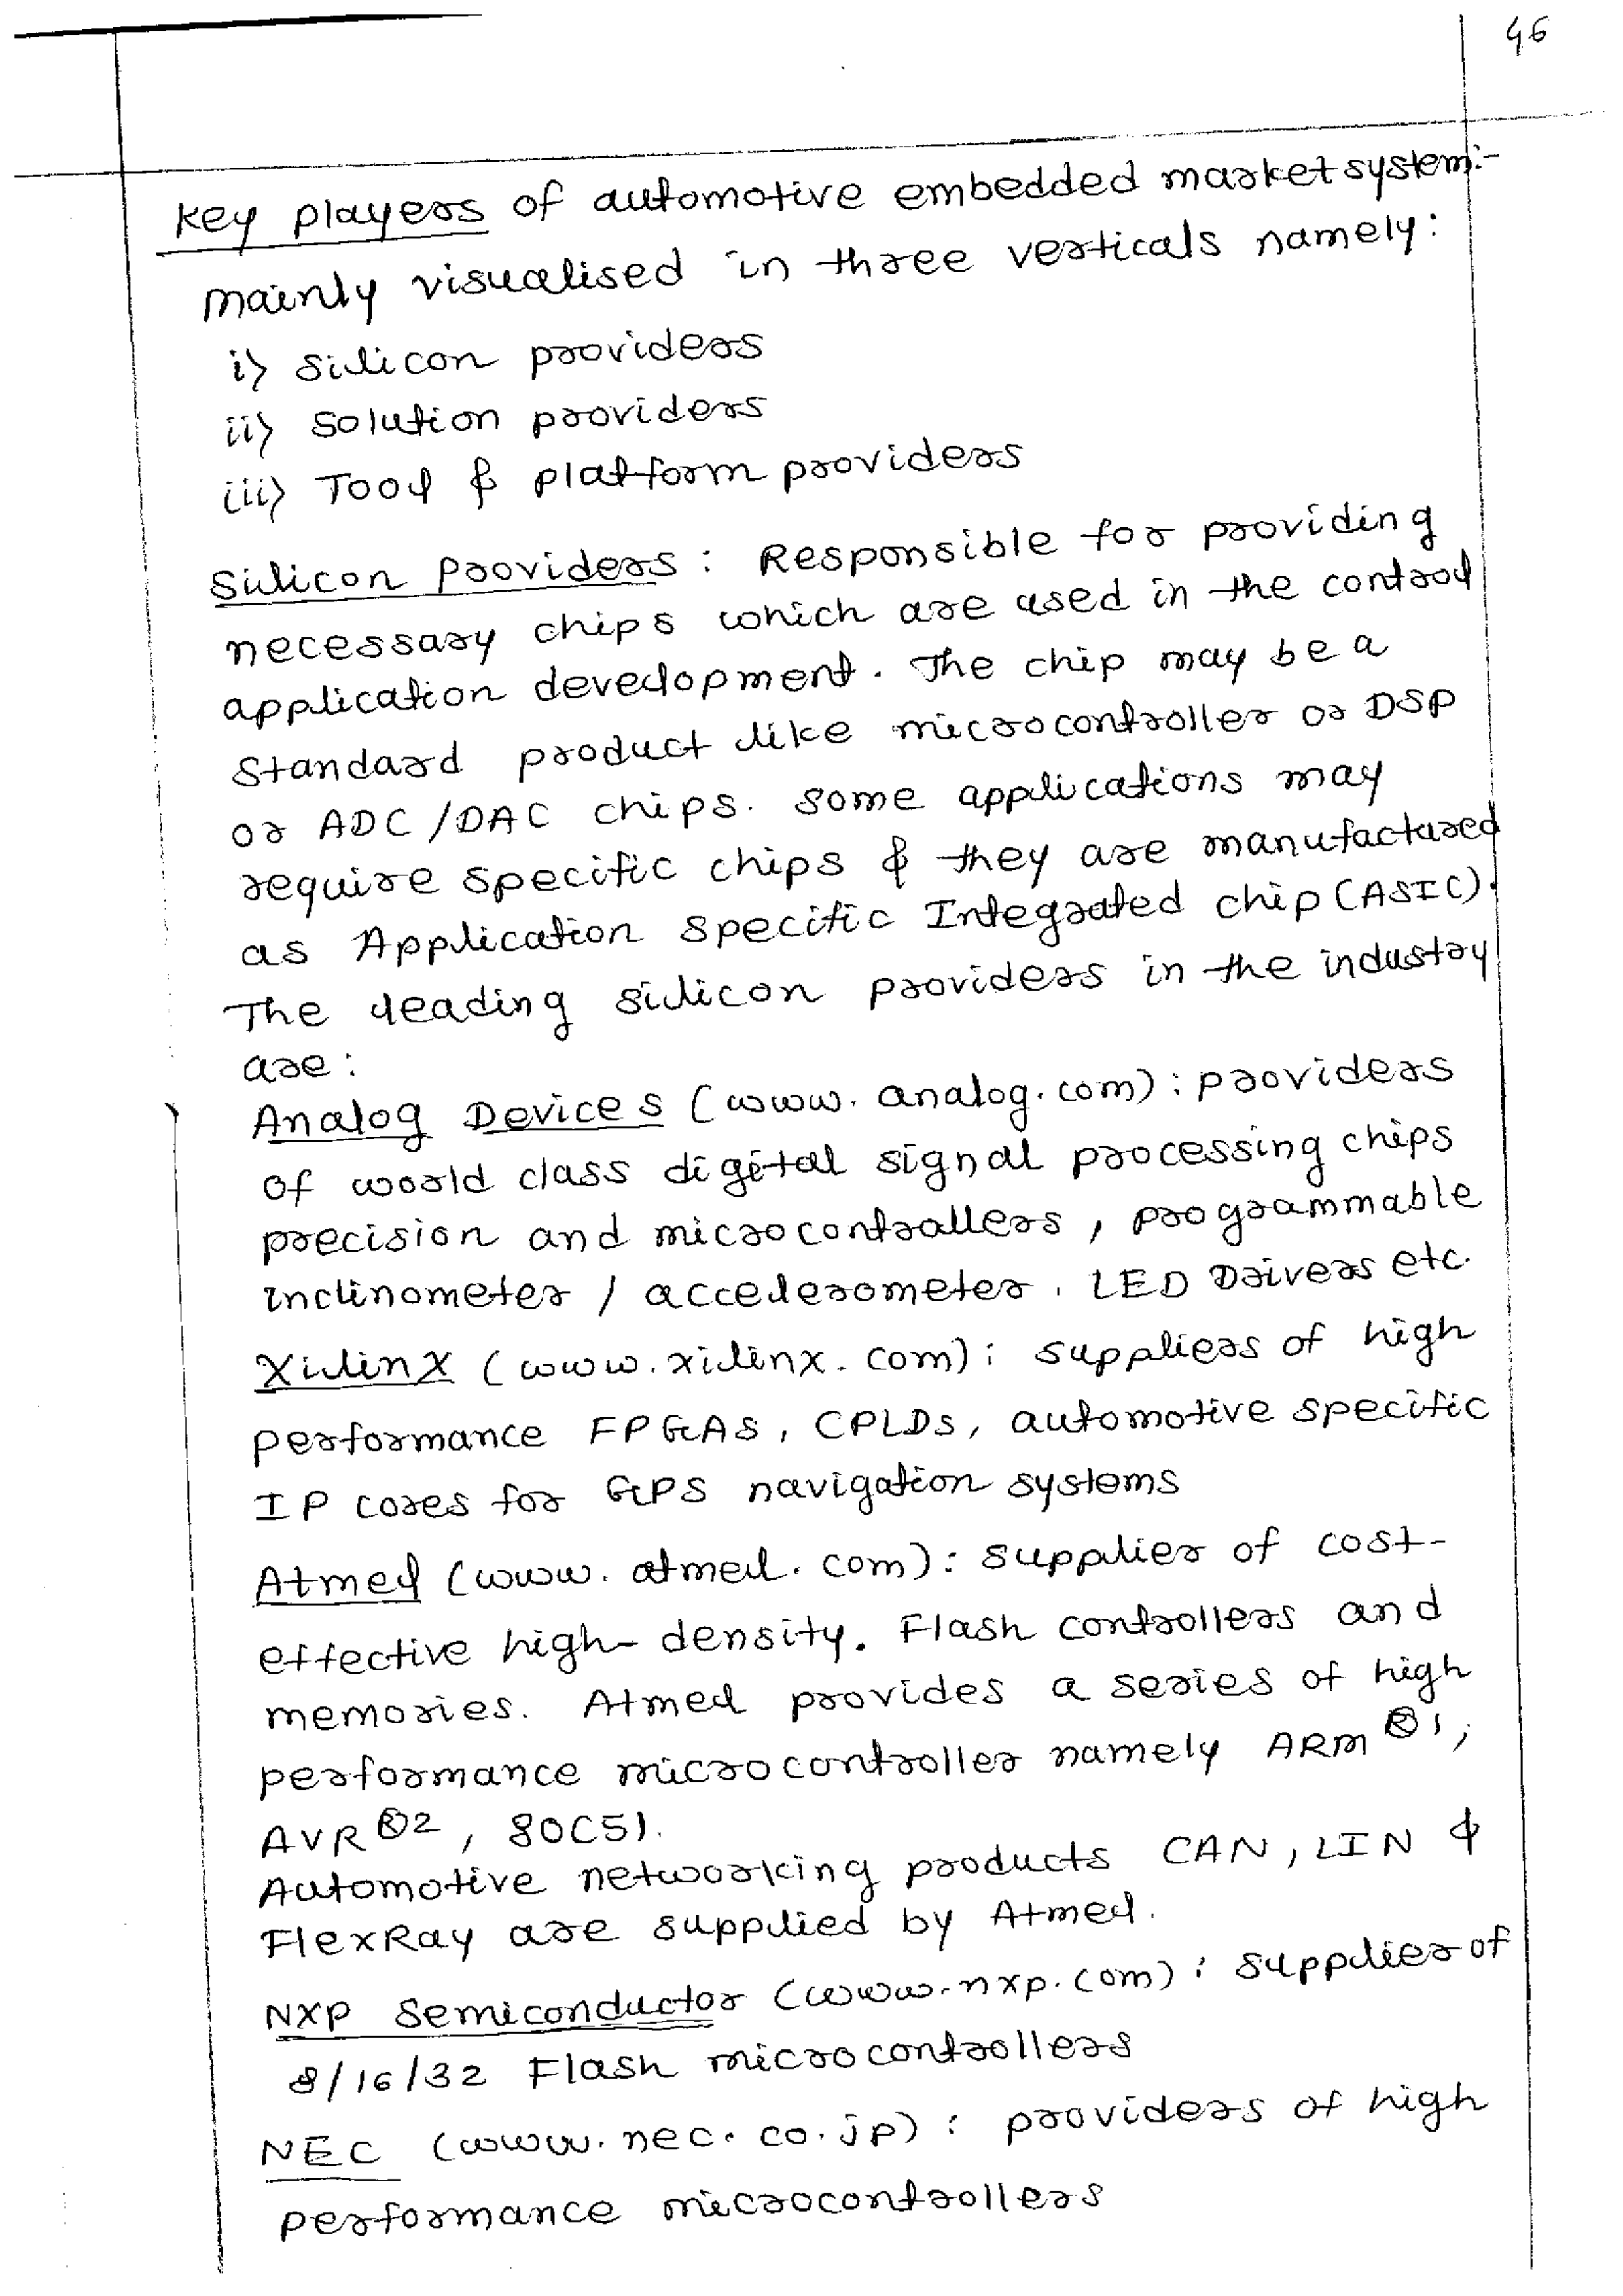 46
Key players of automotive embedded market system:-
mainly visualised in three verticals namely:
i) Silicon providers
ii) Solution providers
iii) Tool & platform providers
Silicon Providers : Responsible for providing
necessary chips which are used in the control
application development. The chip may be a
Standard product like microcontroller or DSP
or ADC/DAC chips. Some applications may
require specific chips & they are manufactured
as Application Specific Integrated chip (ASIC).
The leading silicon providers in the industry
are :
Analog Devices (www.analog.com) : providers
of world class digital signal processing chips
precision and microcontrollers, programmable
inclinometer / accelerometer, LED Drivers etc.
Xilinx (www.xilinx.com) : suppliers of high
performance FPGAS, CPLDs, automotive specific
IP cores for GPS navigation systems
Atmel (www.atmel.com) : supplier of cost-
effective high-density. Flash controllers and
memories. Atmel provides a series of high
performance microcontroller namely ARM®1,
AVR®2, 80C51.
Automotive networking products CAN, LIN &
FlexRay are supplied by Atmel.
NXP Semiconductor (www.nxp.com) : supplier of
8/16/32 Flash microcontrollers
NEC (www.nec.co.jp) : providers of high
performance microcontrollers